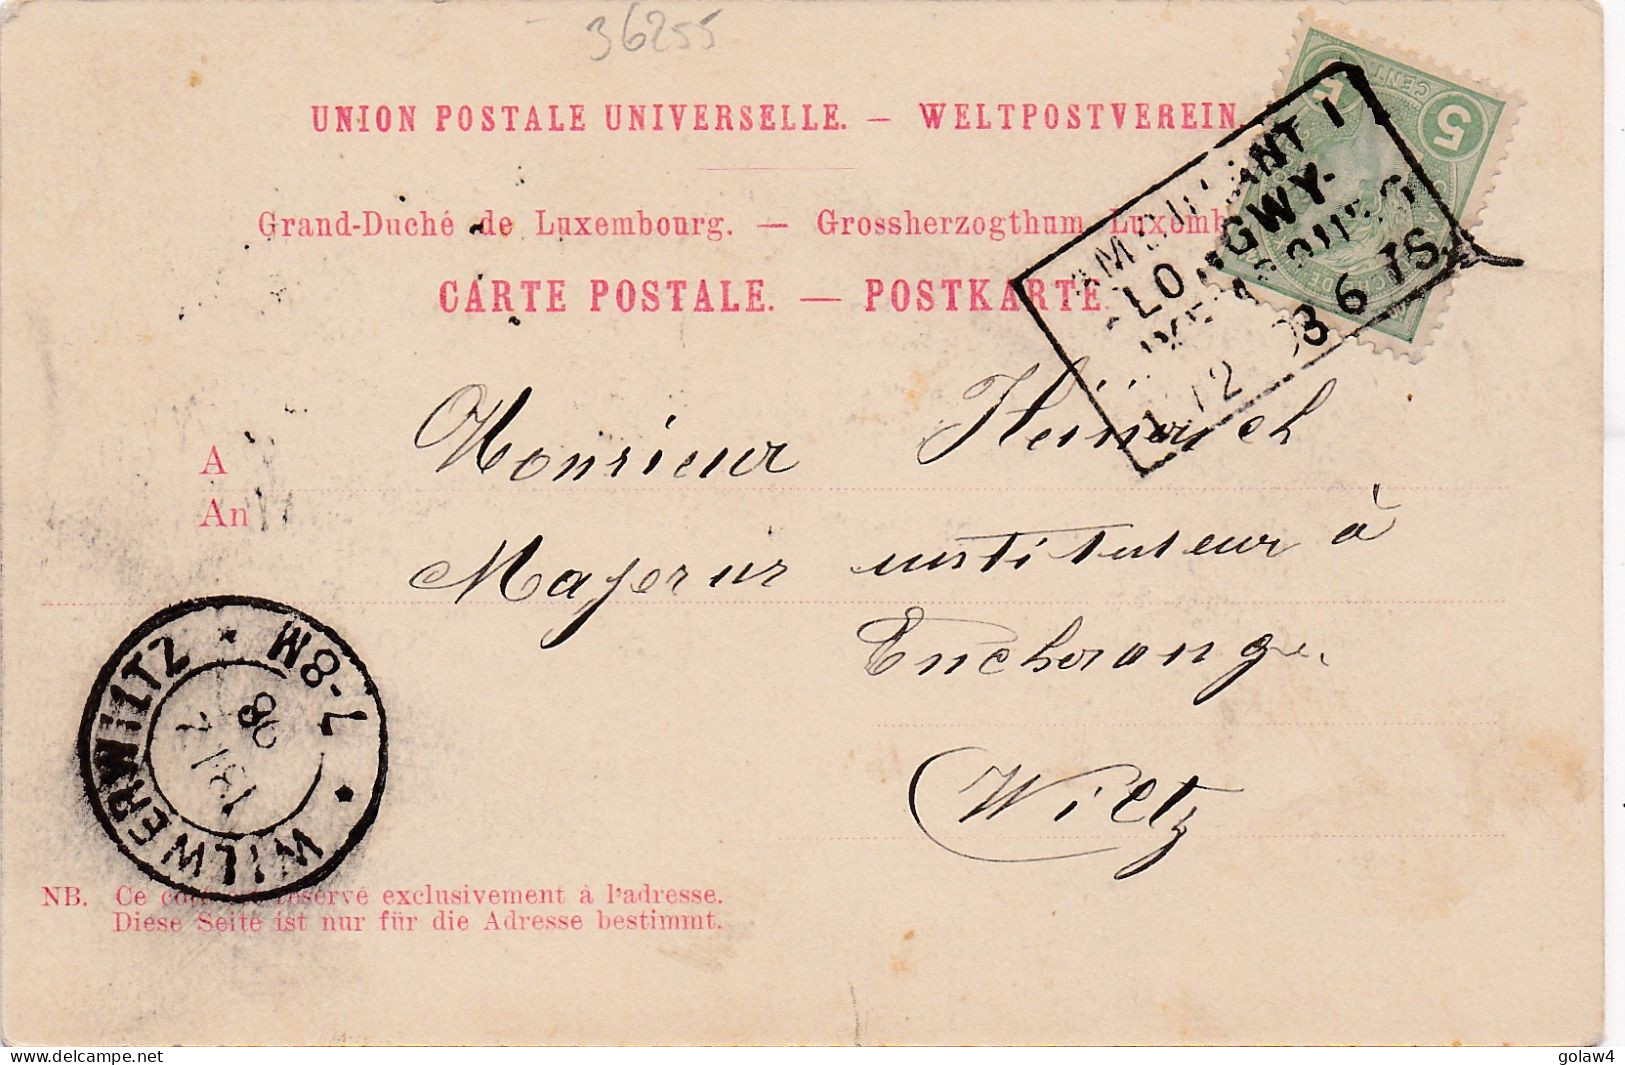 36255
UNION POSTALE UNIVERSELLE. — WELTPOSTVEREIN.
Grand-Duché de Luxembourg. — Grossherzogthum Luxemb
CARTE POSTALE. — POSTKARTE
5 CENT
5
LO GWY
12 03 6 15
A Monsieur Heinrich
An
Majerus instituteur à
Encherange
Wiltz
WILWERWILTZ * 7-8M *
NB. Ce côté est réservé exclusivement à l'adresse.
Diese Seite ist nur für die Adresse bestimmt.
www.delcampe.net
golaw4